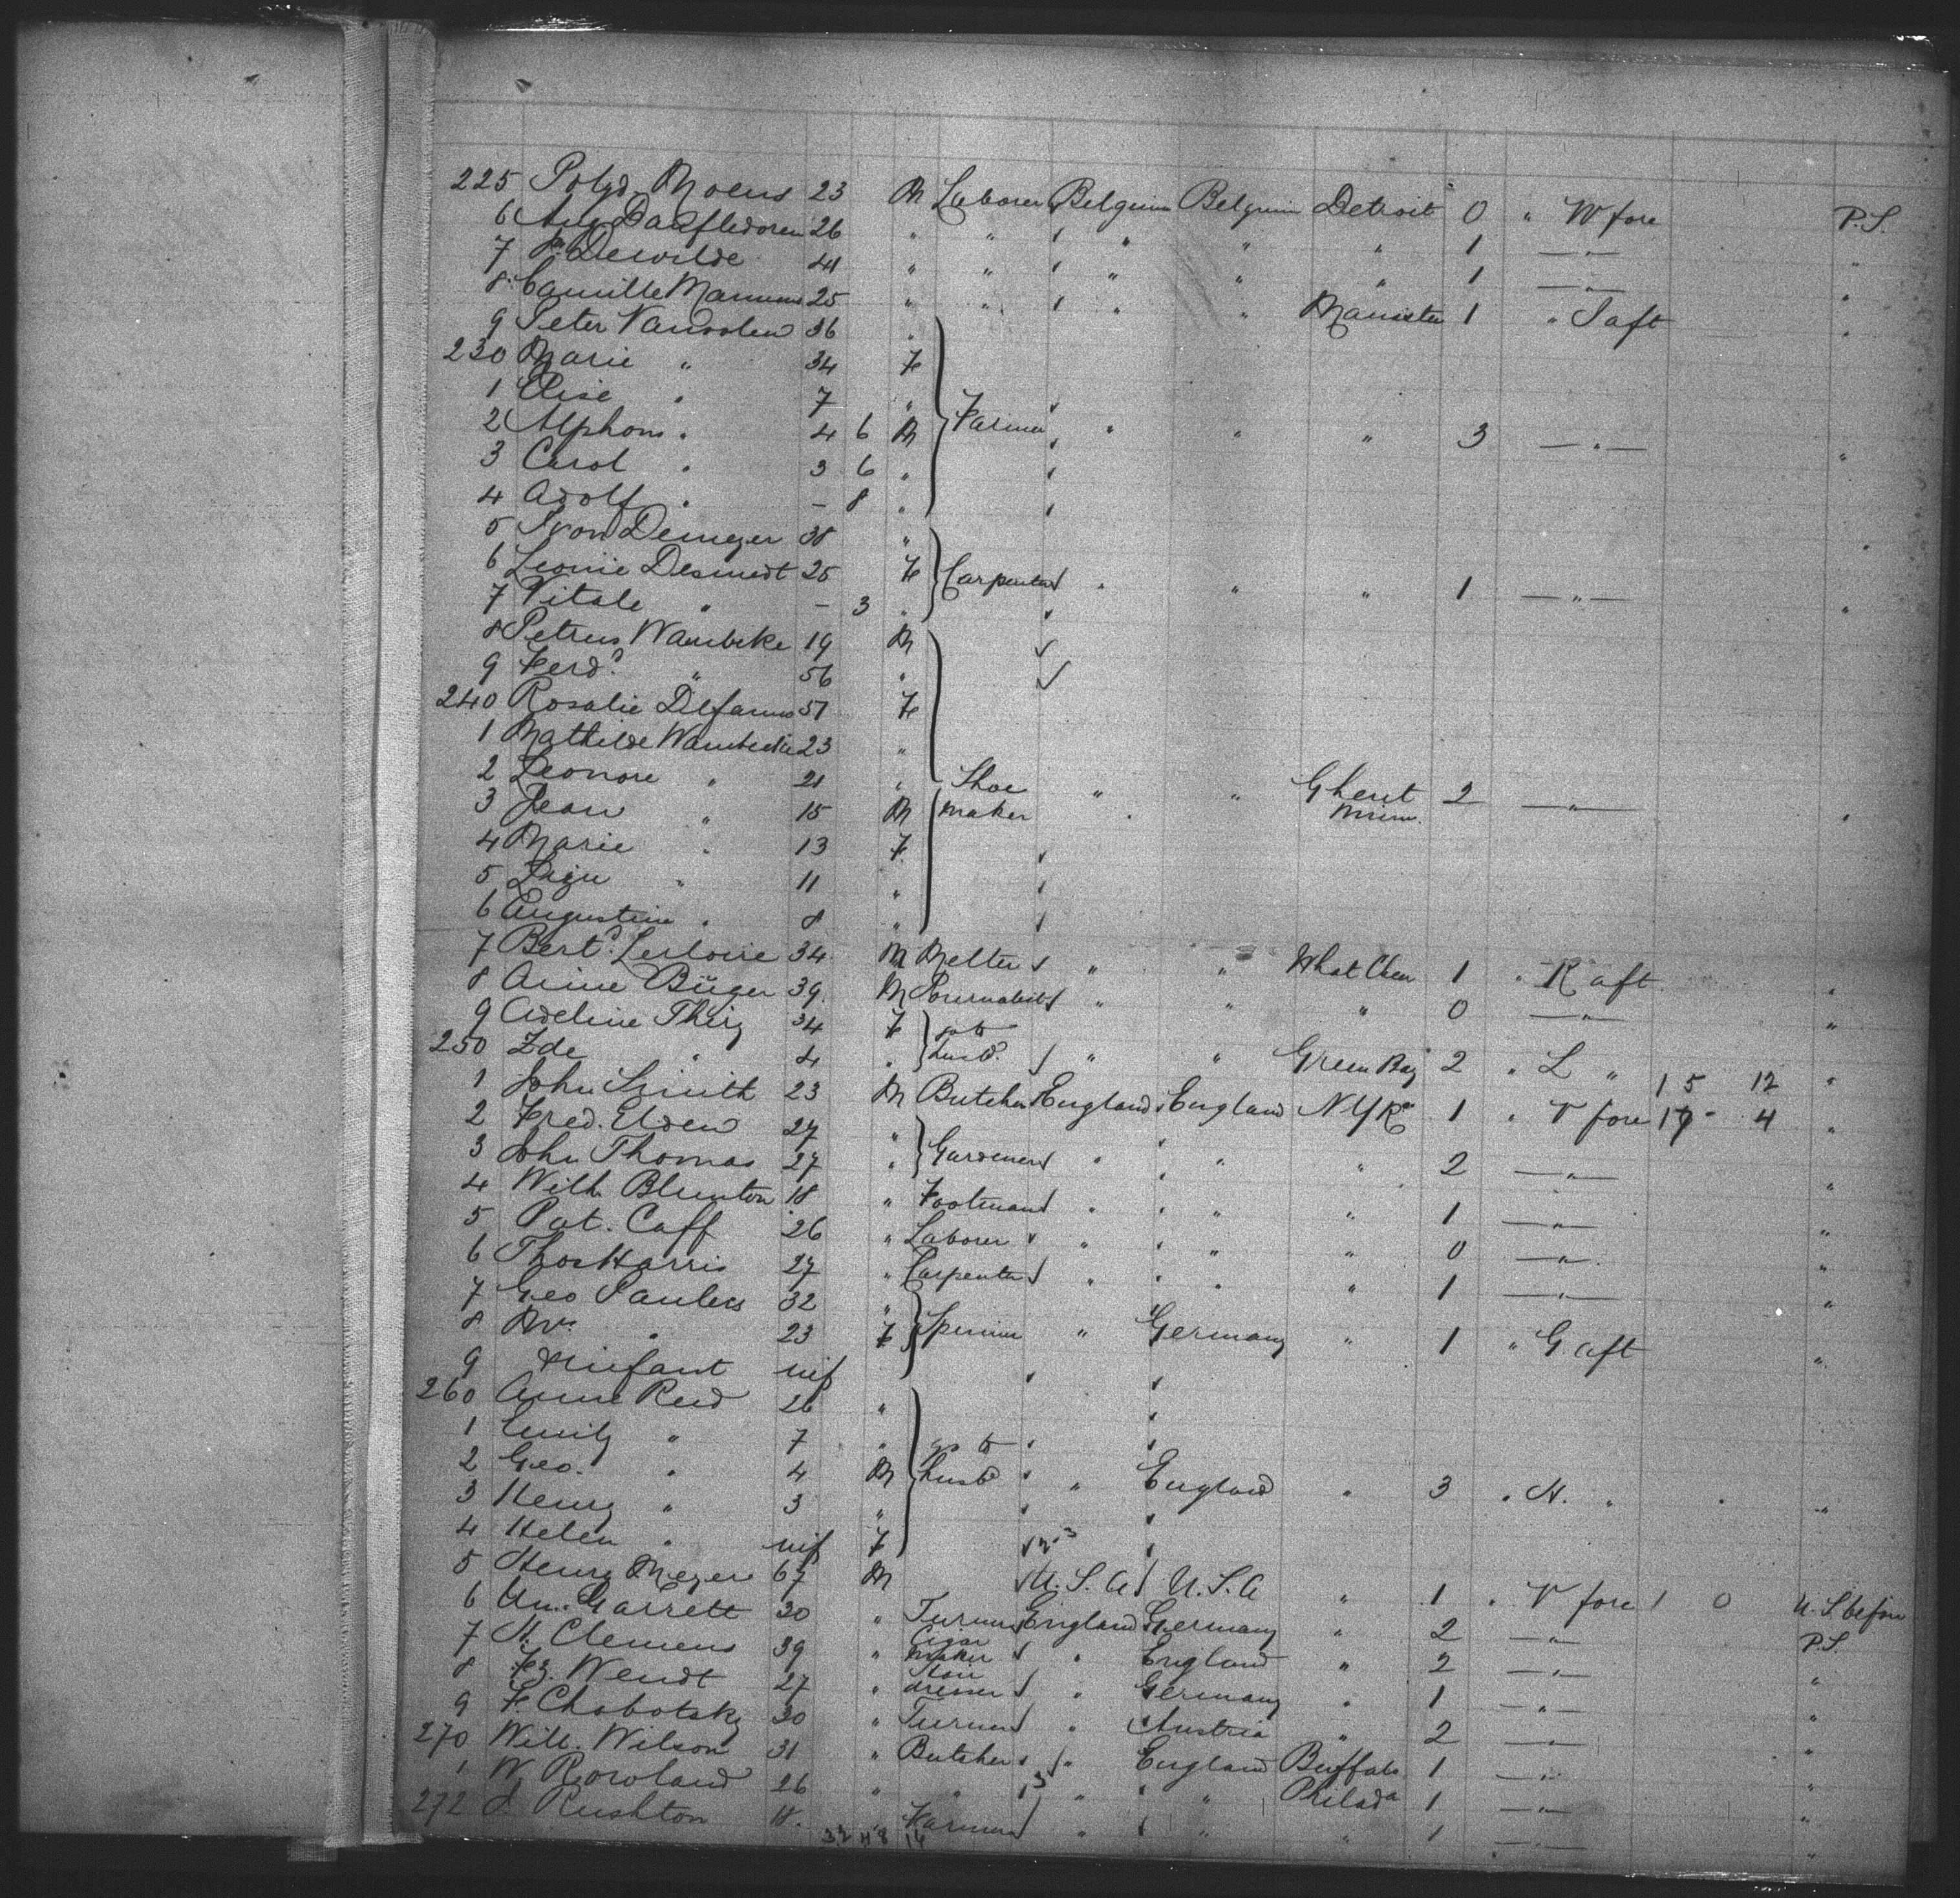 225 Polyd. Moens 23 M Laborer Belgium Belgium Detroit 0 " W fore P.S.
6 Aug 26 " " " " " " 1 — " — "
7 Dewilde 41 " " " " " 1 — " — "
8 Camille 25 " " " " Manistee 1 " S aft "
9 Peter 36 "
230 Marie " 34 F
1 Elise " 7 "
2 Alphons " 4 6 M Farmer " " " 3 — " — "
3 Carol " 3 6 "
4 Adolf " – 8 "
5 Ivon Demeyer 38 " "
6 Leonie Desmedt 25 F Carpenter " " " 1 — " — "
7 Vitale " – 3 "
8 Petrus Wambeke 19 M
9 Ferd. " 56 "
240 Rosalie 57 F
1 Mathilde 23 "
2 Leonore " 21 " Shoe " " Ghent 2 — " — "
3 Jean " 15 M maker " Minn.
4 Marie " 13 F
5 " 11 "
6 Augustine " 8 "
7 Bert. 34 M Melter " " What Cheer 1 " R aft "
8 39 M Journalist " " " 0 — " — "
9 Adeline Thiry 34 F g to
250 Zde " 4 " husbd. " " Green Bay 2 " L " 15 12 "
1 John Smith 23 M Butcher England England N Yk 1 " V fore 17 4 "
2 Fred. Uden 27 "
3 John Thomas 27 " Gardener " " " 2 — " — "
4 Will. Blunton 18 " Footman " " " 1 — " — "
5 Pat. Caff 26 " Laborer " " " 0 — " — "
6 Thos Harris 27 " Carpenter " " " 1 — " — "
7 Geo Paulus 32 "
8 Mrs. " 23 F " Germany " 1 " G aft "
9 Infant inf
260 Anne Reid 26 "
1 Emily " 7 " g to
2 Geo. " 4 M husbd " England " 3 " H. " " "
3 Henry " 3 "
4 Helen " inf F
5 Henry Meyer 67 M U.S.A U.S.A " 1 " V fore 1 0 U.S. before
6 Garrett 30 " Turner England Germany " 2 — " — P.S.
7 H. Clemens 39 " Cigar maker " England " 2 — " — "
8 Wendt 27 " dresser " Germany " 1 — " — "
9 F. Chobotsky 30 " Turner " Austria " 2 — " — "
270 Will. Wilson 31 " Butcher " England Buffalo 1 — " — "
1 W Rowland 26 " " " " Philada 1 — " — "
272 J. Rushton 18. " Farmer " " " 1 — " — "